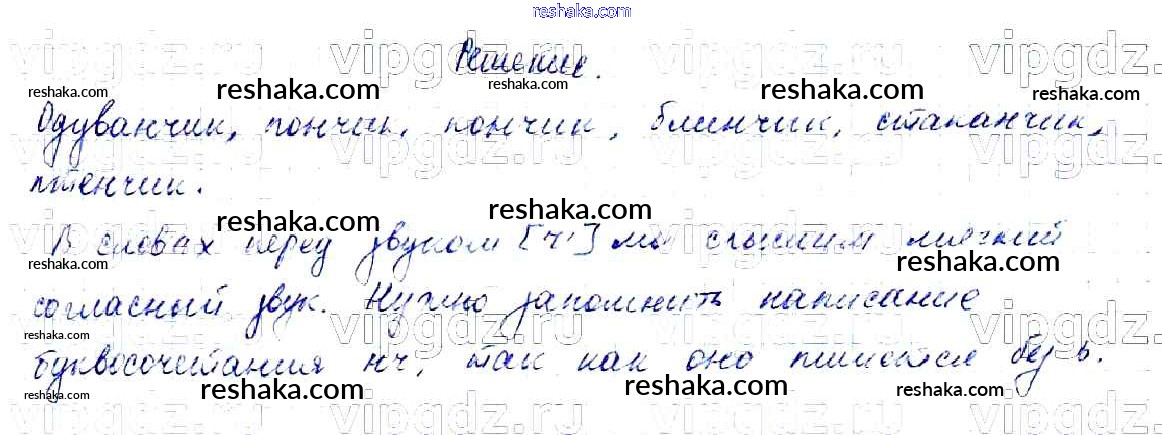 reshaka.com
vipgdz.ru vipgdz.ru vipgdz.ru vipgdz.
Решение.
reshaka.com reshaka.com reshaka.com reshaka.com reshaka.com
Одуванчик, пончик, кончик, блинчик, стаканчик,
vipgdz.ru vipgdz.ru vipgdz.ru vipgdz.
птенчик.
reshaka.com reshaka.com reshaka.com
В словах перед звуком [ч'] мы слышим мягкий
reshaka.com reshaka.com
согласный звук. Нужно запомнить написание
vipgdz.ru vipgdz.ru vipgdz.ru vipgdz.
reshaka.com
буквосочетания нч, так как оно пишется без ь.
reshaka.com reshaka.com reshaka.com reshaka.com
vipgdz.ru vipgdz.ru vipgdz.ru vipgdz.